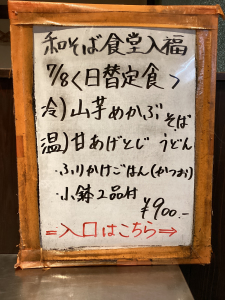 和そば食堂入福
7/8<日替定食>
冷)山芋めかぶそば
温)甘あげとじうどん
・ふりかけごはん(かつお)
・小鉢2品付
¥900.-
=入口はこちら⇒